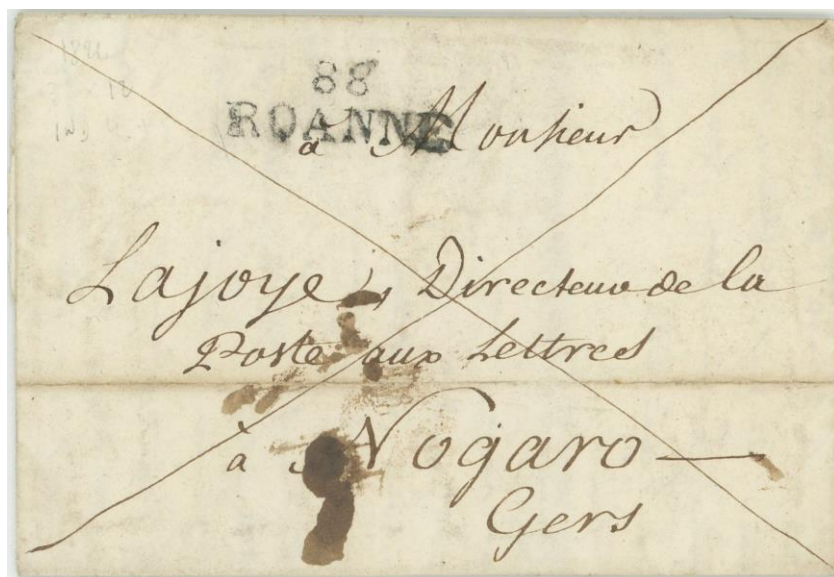 88
ROANNE
à Monsieur
Lajoye, Directeur de la
Poste aux Lettres
à Nogaro
Gers